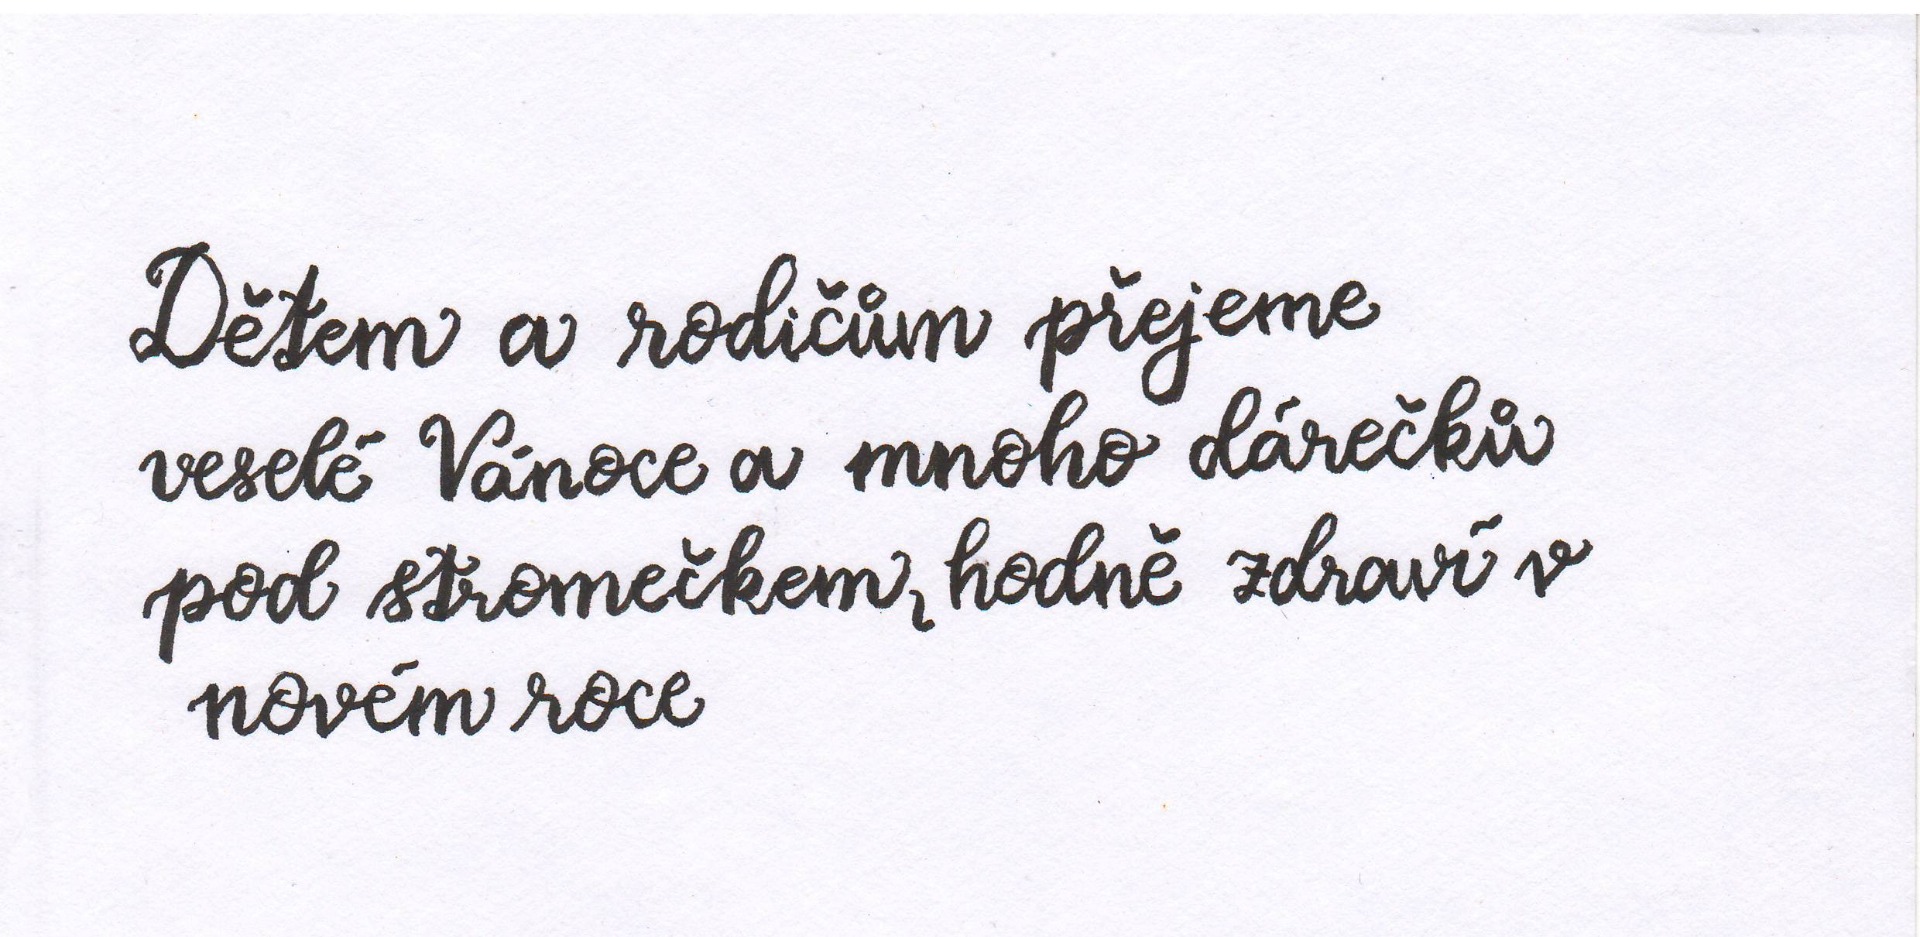 Dětem a rodičům přejeme
veselé Vánoce a mnoho dárečků
pod stromečkem, hodně zdraví v
novém roce